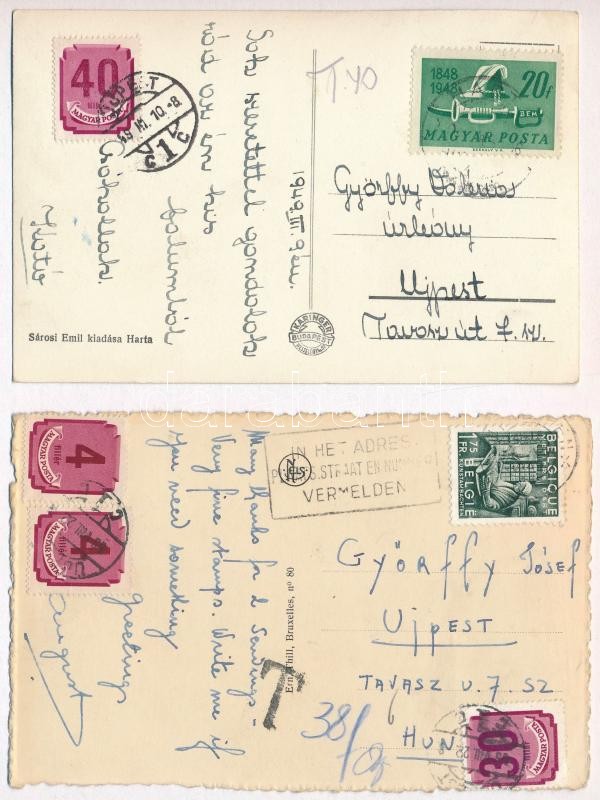 40
MAGYAR POSTA
T. 40
1848
1948
20f
BEM
MAGYAR POSTA
ÚJPEST
49 III. 10.-8
c1c
Sok szeretettel gondolok
rád az én kis
falumból
Csókollak.
Kató
1949. III. 9-én.
Györffy
úrleány
Ujpest
Tavasz út 7. sz.
KARINGER
BUDAPEST
Sárosi Emil kiadása Harta
darabanth
4
fillér
MAGYAR POSTA
4
fillér
MAGYAR POSTA
Many thanks for 2 sendings -
Very fine stamps. Write me if
you need something
greetings
August
IN HET ADRES
STRAAT EN NUMMER
VERMELDEN
BELGIQUE
1.75
FR.
BELGIË
Ern. Thill, Bruxelles, nº 80
T
38/
GYÖRFFY József
UJPEST
TAVASZ U. 7. SZ
HUN
30
MAGYAR POSTA